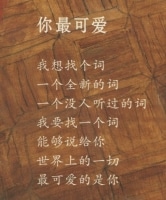 你最可爱
我想找个词
一个全新的词
一个没人听过的词
我要找一个词
能够说给你
世界上的一切
最可爱的是你